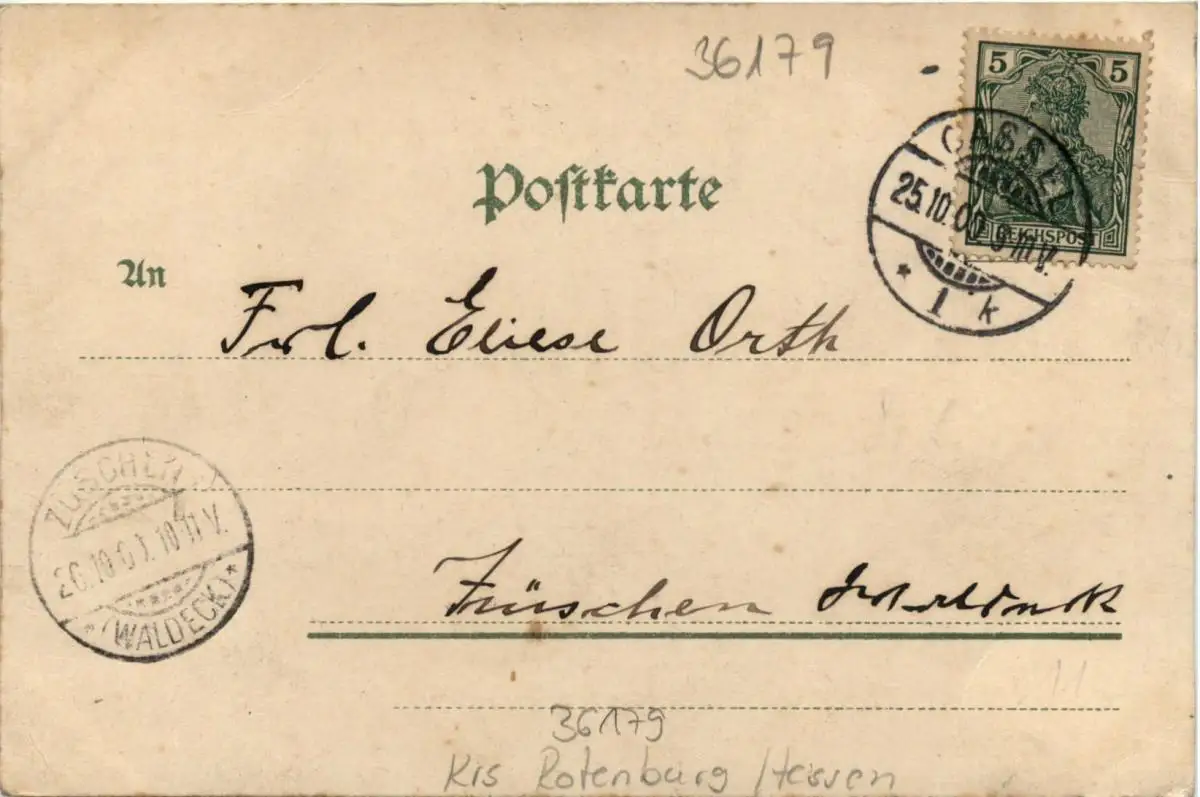 36179
5 5
REICHSPOST
CASSEL
25.10.00 9 m V.
* 1 k
Postkarte
An
Frl. Eliese Orth
ZÜSCHEN
26.10.00. 10-11 V.
* (WALDECK) *
Züschen Waldeck
36179
Krs Rotenburg Hessen